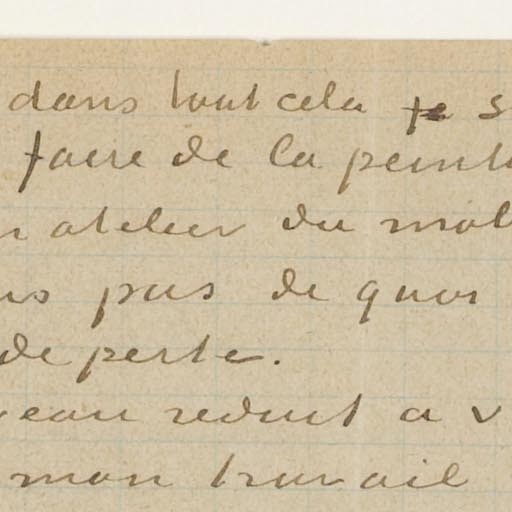 dans tout cela je s
faire de la peint
n atelier du mod
ns pas de quoi
de perte.
veau reduit a v
mon travail